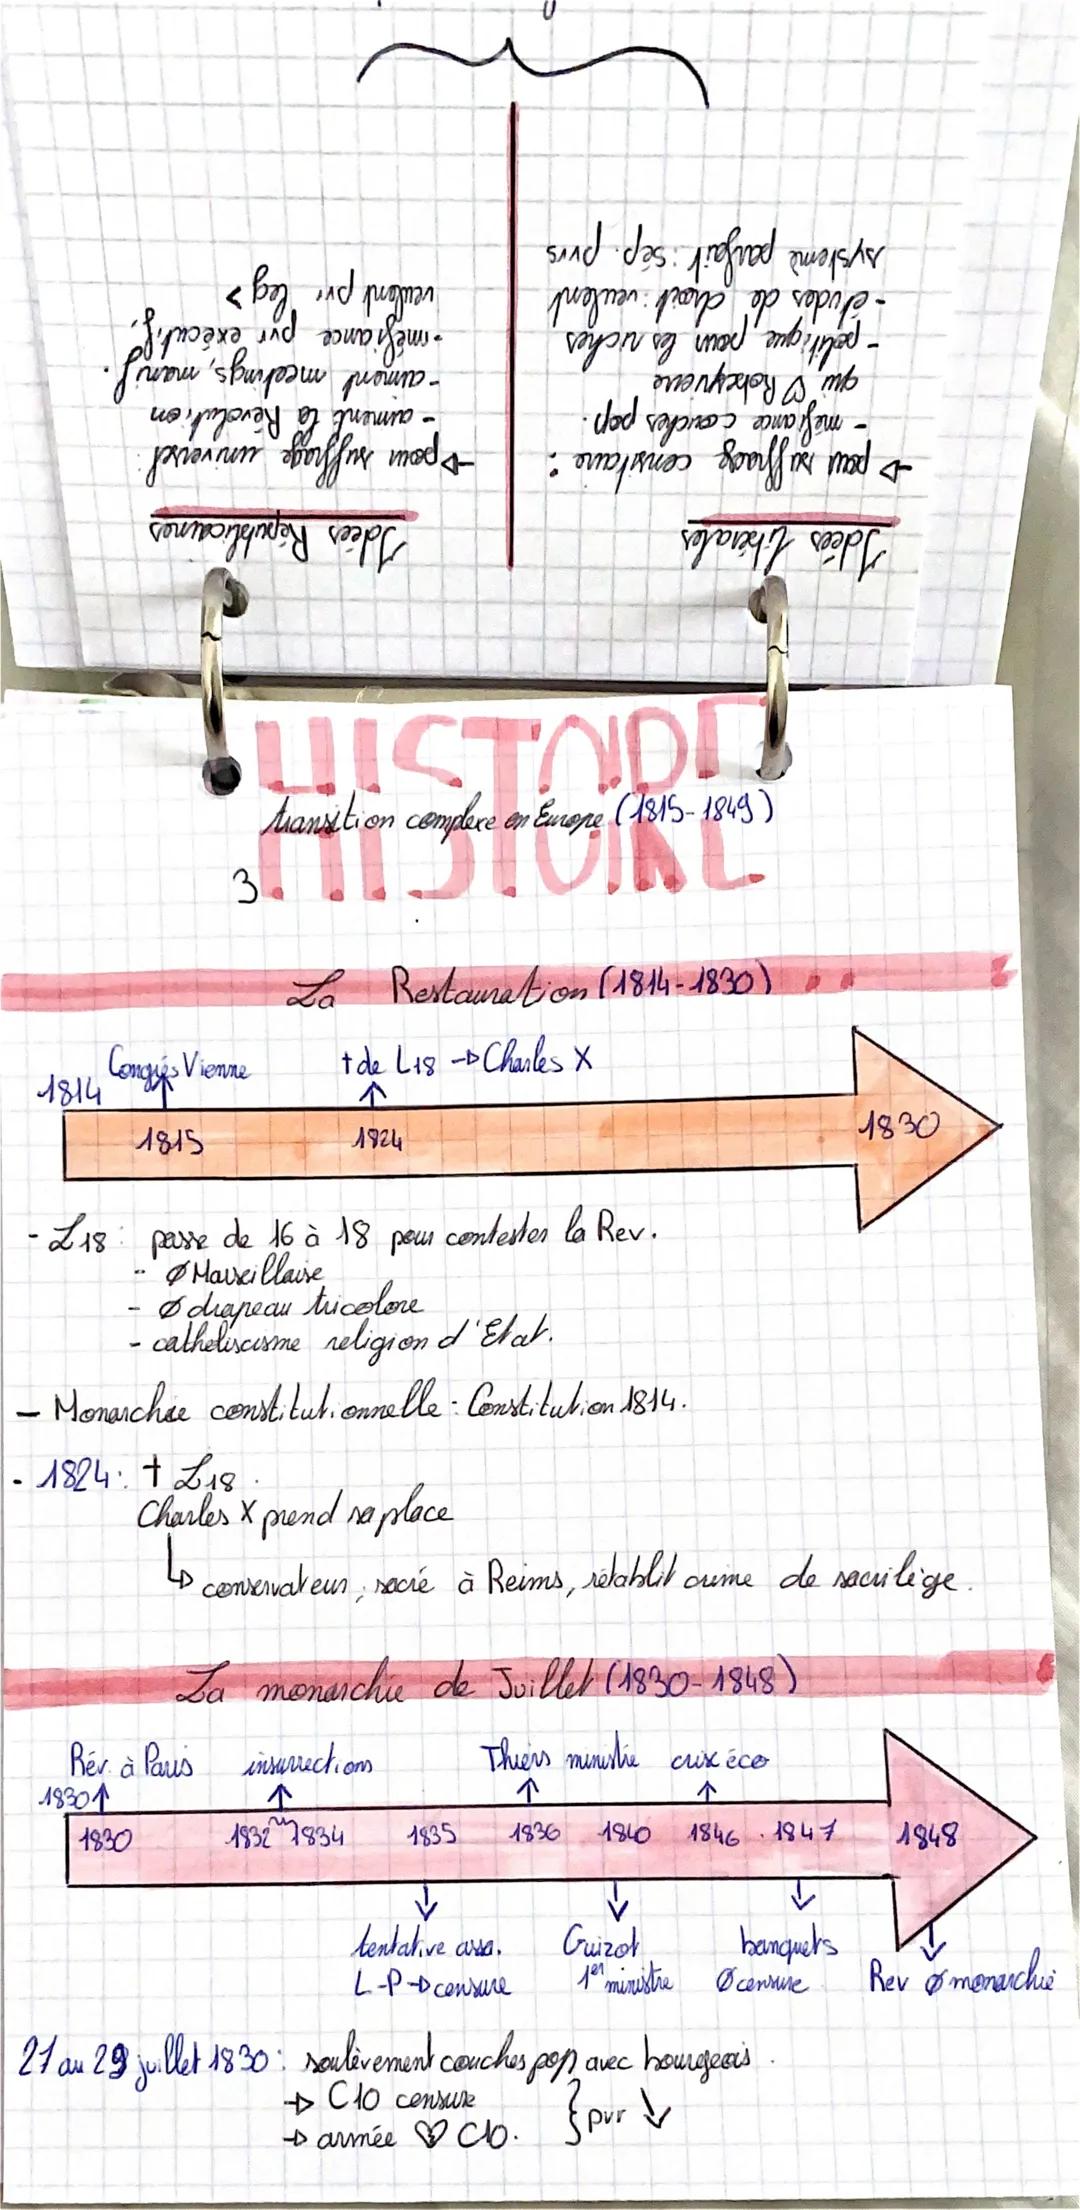 Idées Libérales
-> pour suffrage censitaire :
- méfiance couches pop.
qui ♡ Robespierre
- politique pour les riches
- études de droit : veulent
système parfait : sép. pvrs
Idées Républicaines
-> pour suffrage universel :
- aiment la Révolution
- aiment meetings, manif.
- méfiance pvr exécutif,
veulent pvr leg >
HISTOIRE
transition complexe en Europe (1815-1849)
3
La Restauration (1814-1830)
1814
Congrés Vienne
† de L18 -> Charles X
1815
1824
1830
- L18 : passe de 16 à 18 pour contester la Rev.
- Ø Marseillaise
- Ø drapeau tricolore
- catheliscisme religion d'Etat.
- Monarchie constitutionnelle : Constitution 1814.
- 1824 : † L18.
Charles X prend sa place
↳ conservateur, sacré à Reims, rétablit crime de sacrilège.
La monarchie de Juillet (1830-1848)
Rév. à Paris
insurrections
Thiers ministre
crise éco
1830
1830
1832 ~ 1834
1835
1836
1840
1846
1847
1848
tentative assa.
L-P -> censure
Guizot
1er ministre
banquets
Ø censure
Rev Ø monarchie
27 au 29 juillet 1830 : soulèvement couches pop avec bourgeois.
-> C10 censure
-> armée ♡ C10.
} pvr ↘